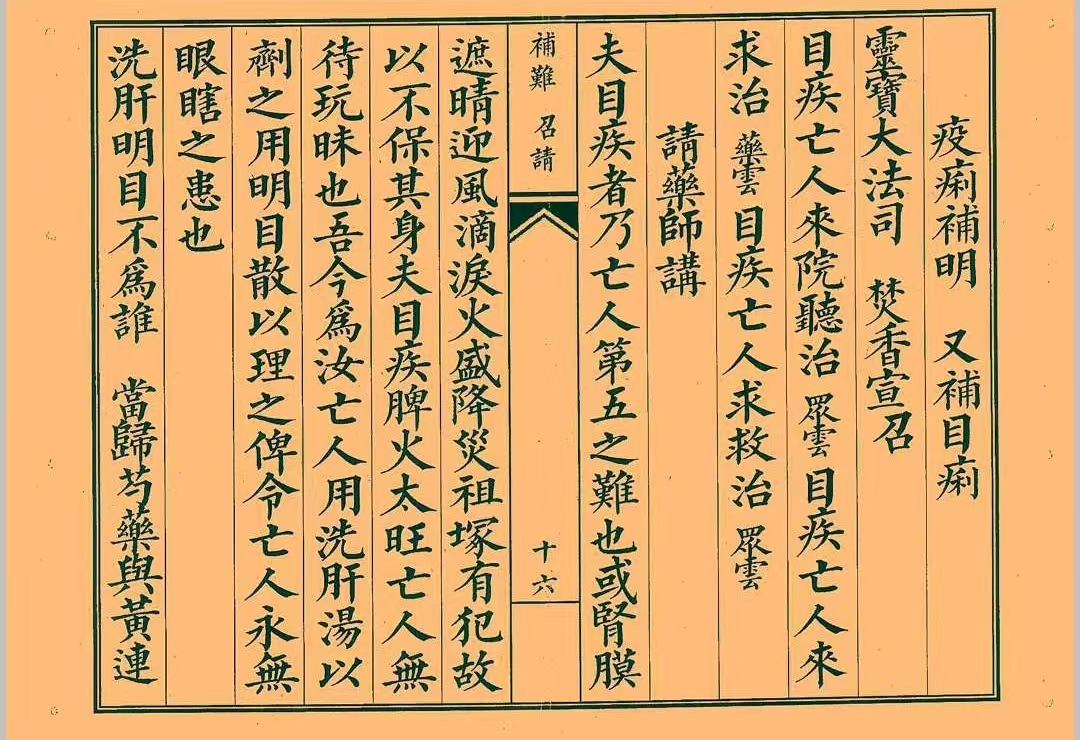 疫痢補明　又補目痢
靈寶大法司　焚香宣召
目疾亡人來院聽治 眾雲 目疾亡人來
求治 藥雲 目疾亡人求救治 眾雲
請藥師講
夫目疾者乃亡人第五之難也或腎膜
補難 召請
十六
遮晴迎風滴淚火盛降災祖塚有犯故
以不保其身夫目疾脾火太旺亡人無
待玩昧也吾今為汝亡人用洗肝湯以
劑之用明目散以理之俾令亡人永無
眼瞎之患也
洗肝明目不為誰　當歸芍藥與黃連